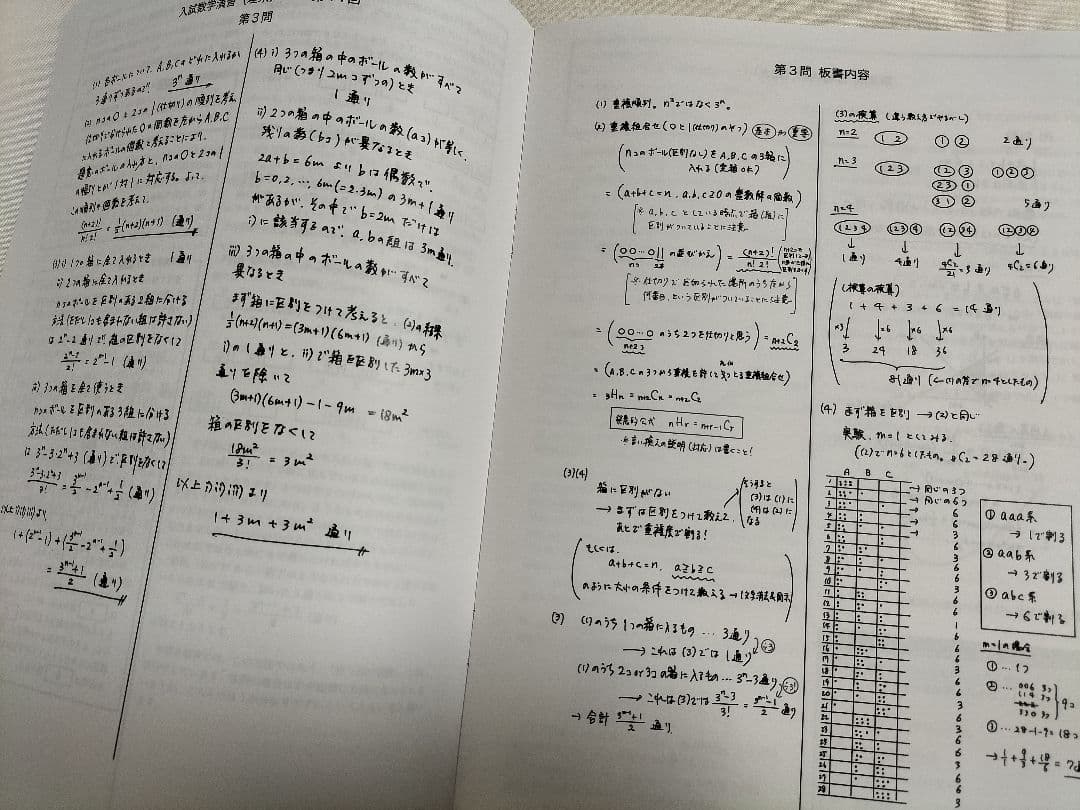 入試数学演習
第3問
(1) 各ボールについて、A,B,Cのどれに入れるか
3通りずつあるので、 3ⁿ通り
(2) n コの○と2コの | (仕切り)の順列を考え
仕切りで分けられた○の個数を左からA,B,C
に入れるボールの個数と考えることにより、
題意のボールの入れ方と、nコの○と2コの |
の順列とが1対1に対応する。よって、
この順列の個数を考えて、
(n+2)!/n!2! = 1/2(n+2)(n+1) (通り)
(3) i) 1つの箱に全て入れるとき 1通り
ii) 2つの箱に全て入れるとき
nコのボールを区別のある2組に分ける
方法(ただし1つも含まれない組は許さない)
は 2ⁿ-2 通りで、箱の区別をなくして
(2ⁿ-2)/2! = 2ⁿ⁻¹-1 (通り)
iii) 3つの箱を全て使うとき
nコのボールを区別のある3組に分ける
方法(ただし1つも含まれない組は許さない)
は 3ⁿ-3・2ⁿ+3 (通り)で区別をなくして
(3ⁿ-3・2ⁿ+3)/3! = 3ⁿ⁻¹/2 - 2ⁿ⁻¹ + 1/2 (通り)
以上i)ii)iii)より、
1+(2ⁿ⁻¹-1)+(3ⁿ⁻¹/2-2ⁿ⁻¹+1/2)
= (3ⁿ⁻¹+1)/2 (通り)
(4) i) 3つの箱の中のボールの数がすべて
同じ(つまり2mコずつの)とき
1通り
ii) 2つの箱の中のボールの数(aコ)が等しく、
残りの数(bコ)が異なるとき
2a+b=6m よりbは偶数で、
b=0,2,…,6m(=2・3m)の3m+1通り
があるが、その中でb=2mだけは
i)に該当するので、a,bの組は3m通り。
iii) 3つの箱の中のボールの数がすべて
異なるとき
まず箱に区別をつけて考えると、(2)の結果
1/2(n+2)(n+1)=(3m+1)(6m+1) (通り)から
i)の1通りと、ii)で箱を区別した3m×3
通りを除いて
(3m+1)(6m+1)-1-9m = 18m²
箱の区別をなくして
18m²/3! = 3m²
以上i)ii)iii)より
1+3m+3m² 通り
第3問 板書内容
(1) 重複順列。n³ではなく3ⁿ。
(2) 重複組合せ(○と | (仕切り)のやつ) 基本 かつ 重要
(nコのボール(区別なし)をA,B,Cの3箱に
入れる(空箱OK))
= (a+b+c=n, a,b,c≧0の整数解の個数)
[※a,b,cとしている時点で箱(組)に
区別がついていることに注意]
= (○○…○|| の並びかえ) = (n+2)!/n!2!
[※仕切りで区切られた場所のうち左から
何番目、という区別がついていることに注意]
= (○○…○ のうち2つを仕切りと思う) = n+2C2
n+2コ
= (A,B,Cの3つから重複を許してnコとる重複組合せ)
= 3Hn = n+2Cn = n+2C2
発展的公式 nHr = n+r-1Cr
※言い換えの説明(対応)は書くこと!
(3)(4)
箱に区別がない
→ まずは区別をつけて数えて、
あとで重複度で割る!
そうすると
(3)は(1)に
(4)は(2)に
なる
もしくは、
a+b+c=n, a≧b≧c
のように大小の条件をつけて数える
(3) (1)のうち1つの箱に入るもの … 3通り
÷3
→ これは(3)では1通り
(1)のうち2コor3コの箱に入るもの … 3ⁿ-3通り
÷3!
→ これは(3)では (3ⁿ-3)/3! = (3ⁿ⁻¹-1)/2 通り
→ 合計 (3ⁿ⁻¹+1)/2 通り
(3)の検算 (違う数え方でやるべし)
n=2 (1 2) (1)(2) 2通り
n=3 (1 2 3) (1 2)(3) (1)(2)(3)
(2 3)(1)
(3 1)(2) 5通り
n=4
(1 2 3 4) (1 2 3)(4) (1 2)(3 4) (1 2)(3)(4)
↓ ↓ ↓ ↓
1通り 4通り 4C2/2!=3通り 4C2=6通り
(検算の検算)
1 + 4 + 3 + 6 = 14通り
×3 ×6 ×6 ×6
3 24 18 36
81通り (←(1)の答でn=4としたもの)
(4) まず箱を区別 → (2)と同じ
実験、m=1としてみる。
((2)でn=6としたもの。8C2=28通り。)
A B C
→同じの3つ
→同じの6つ
① aaa系
→ 1で割る
② aab系
→ 3で割る
③ abc系
→ 6で割る
m=1の場合
① … 1つ
② … 006 3つ
114 3つ
330 3つ
9コ
③ … 28-1-9=18コ
→ 1/1+9/3+18/6 = 7通